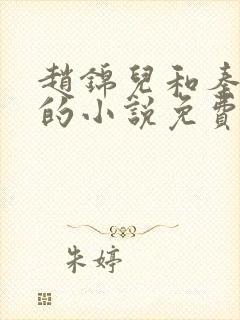 趙錦兒和秦
的小說免費
朱婷